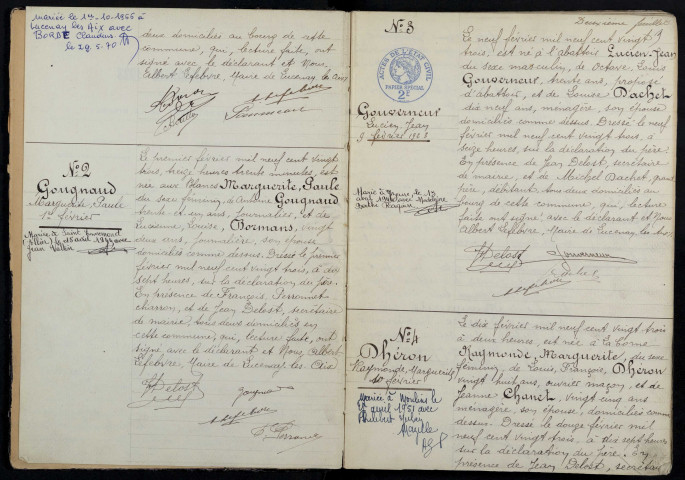 mariée le 1er-10-1955 à
Lucenay les Aix avec
BORDE Claudius
le 29.5.70
deux domiciliés au bourg de cette
commune, qui, lecture faite, ont
signé avec le déclarant et Nous,
Albert Lefebvre, Maire de Lucenay les Aix
N°2
Gougnaud
Marguerite, Paule
1er février
Mariée à Saint
(Allier) le 18 août 1944 avec
Jean
Le premier février mil neuf cent vingt
trois, treize heures trente minutes est
née aux Blancs Marguerite, Paule
du sexe féminin, de Antoine Gougnaud
trente et un ans, journalier, et de
Louise, Dormans, vingt
deux ans, journalière, son épouse
domiciliés comme dessus. Dressé le premier
février mil neuf cent vingt trois, à dix
sept heures, sur la déclaration du père.
En présence de François, Perronnet
charron, et de Jean Delost, secrétaire
de mairie, tous deux domiciliés en
cette commune, qui, lecture faite, ont
signé avec le déclarant et Nous, Albert
Lefebvre, Maire de Lucenay les Aix
JDelost
Deuxième feuillet
N°3
ACTES DE L'ETAT CIVIL
PAPIER SPECIAL
2F
Gouverneur
Lucien, Jean
9 février 1923
Le neuf février mil neuf cent vingt
trois, est né à l'abattoir Lucien-Jean
du sexe masculin, de Octave, Louis
Gouverneur, trente ans, préposé
d'abattoir, et de Louise Dachet
dix neuf ans, ménagère, son épouse
domiciliés comme dessus. Dressé le neuf
février mil neuf cent vingt trois, à
seize heures, sur la déclaration du père.
En présence de Jean Delost, secrétaire
de mairie, et de Michel Dachet, grand
père, débitant, tous deux domiciliés au
bourg de cette commune, qui, lecture
faite ont signé avec le déclarant et Nous
Albert Lefebvre, Maire de Lucenay les Aix
JDelost
Gouverneur
N°4
Dhéron
Raymonde, Marguerite
10 février
mariée à Moulins le
avril 1951 avec
Philibert
Le dix février mil neuf cent vingt trois
à deux heures, est née à la Corne
Raymonde, Marguerite, du sexe
féminin, de Louis, François, Dhéron
vingt huit ans, ouvrier maçon, et de
Jeanne Chanet, vingt cinq ans
ménagère, son épouse, domiciliés comme
dessus. Dressé le douze février mil
neuf cent vingt trois, à dix sept heures
sur la déclaration du père. En
présence de Jean Delost, secrétaire